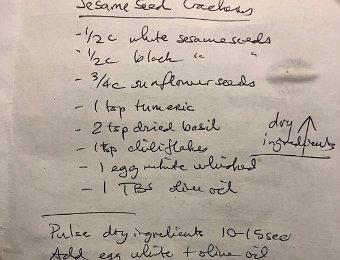 Sesame Seed Crackers
- 1/2 c white sesame seeds
- 1/2 c black " "
- 3/4 c sunflower seeds
- 1 tsp tumeric
- 2 tsp dried basil
- 1 tsp chiliflakes
dry ingredients
- 1 egg white whished
- 1 TBS olive oil
Pulse dry ingredients 10-15 sec
Add egg white + olive oil